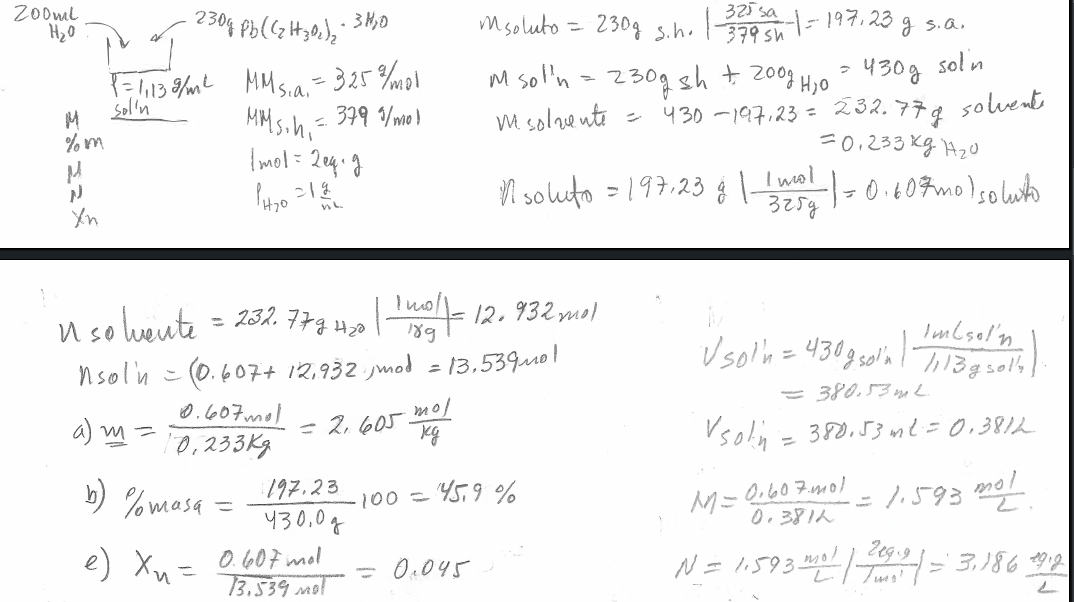 200ml H₂O
230g Pb(C₂H₃O₂)₂ · 3H₂O
ρ = 1,13 g/mL
sol'n
M
%m
M
N
Xn
MM s.a. = 325 g/mol
MM s.h. = 379 g/mol
1mol = 2eq·g
ρ H₂O = 1 g/mL
m soluto = 230g s.h. | 325 sa / 379 sh | = 197.23 g s.a.
m sol'n = 230g sh + 200g H₂O = 430g sol'n
m solvente = 430 - 197.23 = 232.77g solvente
= 0.233 kg H₂O
n soluto = 197.23 g | 1 mol / 325g | = 0.607mol soluto
n solvente = 232.77g H₂O | 1mol / 18g | = 12.932 mol
n sol'n = (0.607 + 12.932) mol = 13.539mol
a) m = 0.607mol / 0.233Kg = 2.605 mol/kg
b) %masa = 197.23 / 430.0g 100 = 45.9 %
e) Xn = 0.607 mol / 13.539 mol = 0.045
V sol'n = 430g sol'n | 1mL sol'n / 1,13g sol'n |
= 380.53 mL
V sol'n = 380.53 mL = 0.381L
M = 0.607mol / 0.381L = 1.593 mol/L
N = 1.593 mol/L | 2eq·g / 1mol | = 3.186 eq·g/L